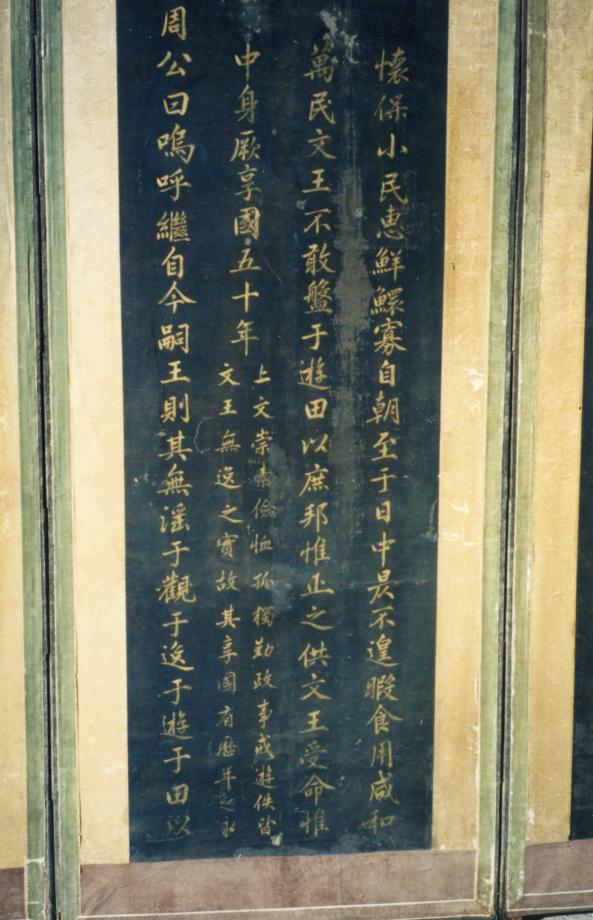 懷保小民惠鮮鰥寡自朝至于日中昃不遑暇食用咸和
萬民文王不敢盤于遊田以庶邦惟正之供文王受命惟
中身厥享國五十年
上文崇素儉恤孤獨勤政事戒遊佚皆
文王無逸之實故其享國有歷年之永
周公曰嗚呼繼自今嗣王則其無淫于觀于逸于遊于田以